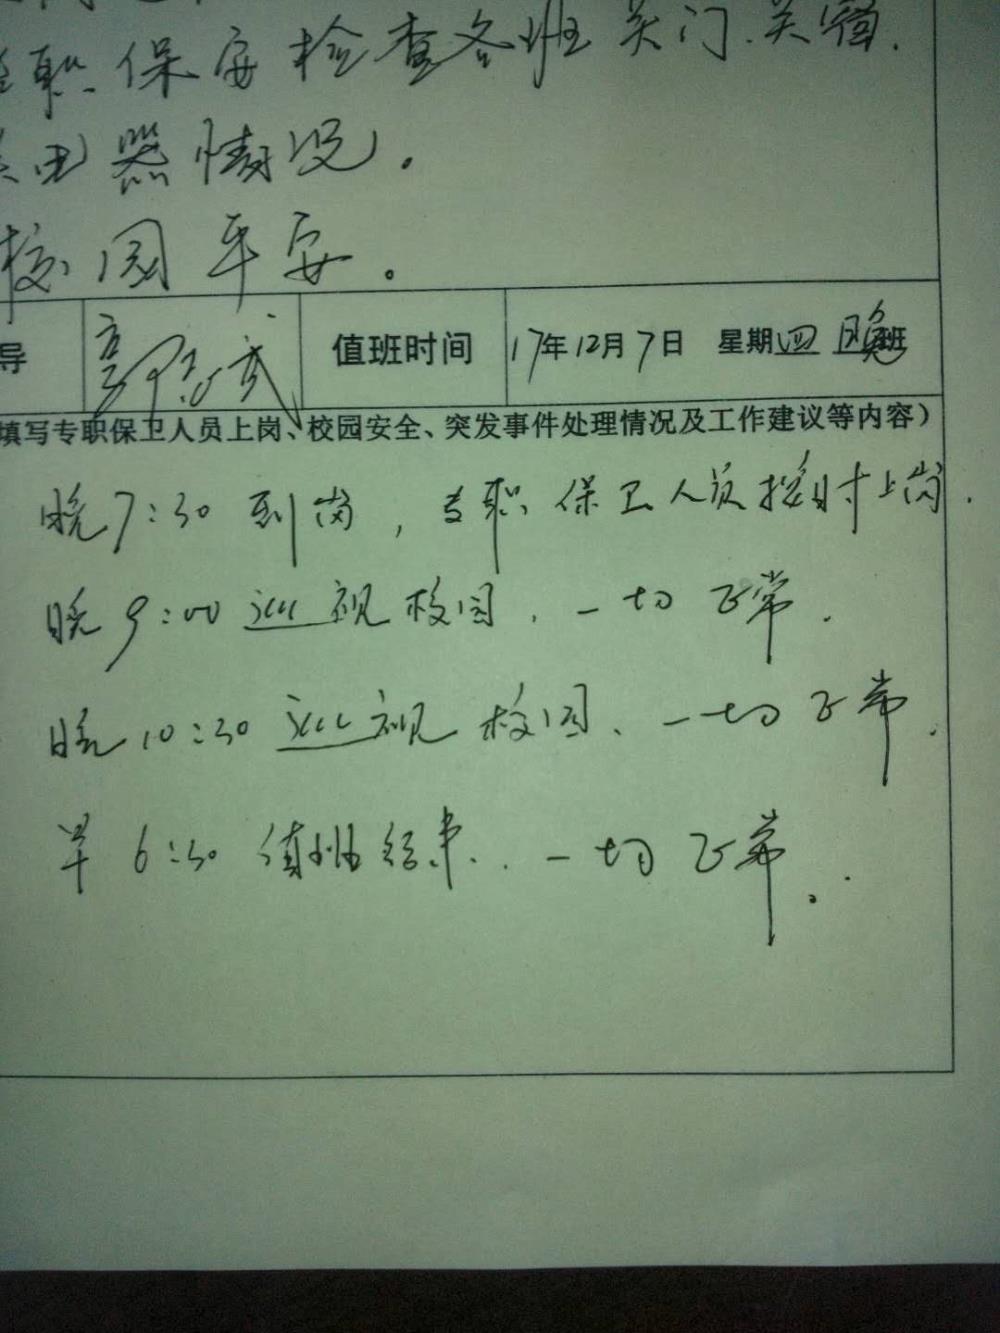 职保安检查各班关门、关窗、
关电器情况。
校园平安。
导 值班时间 17年12月7日 星期四 晚班
填写专职保卫人员上岗、校园安全、突发事件处理情况及工作建议等内容）
晚7:30到岗，专职保卫人员按时上岗.
晚9:00巡视校园，一切正常.
晚10:30巡视校园、一切正常.
早6:30值班结束.一切正常.